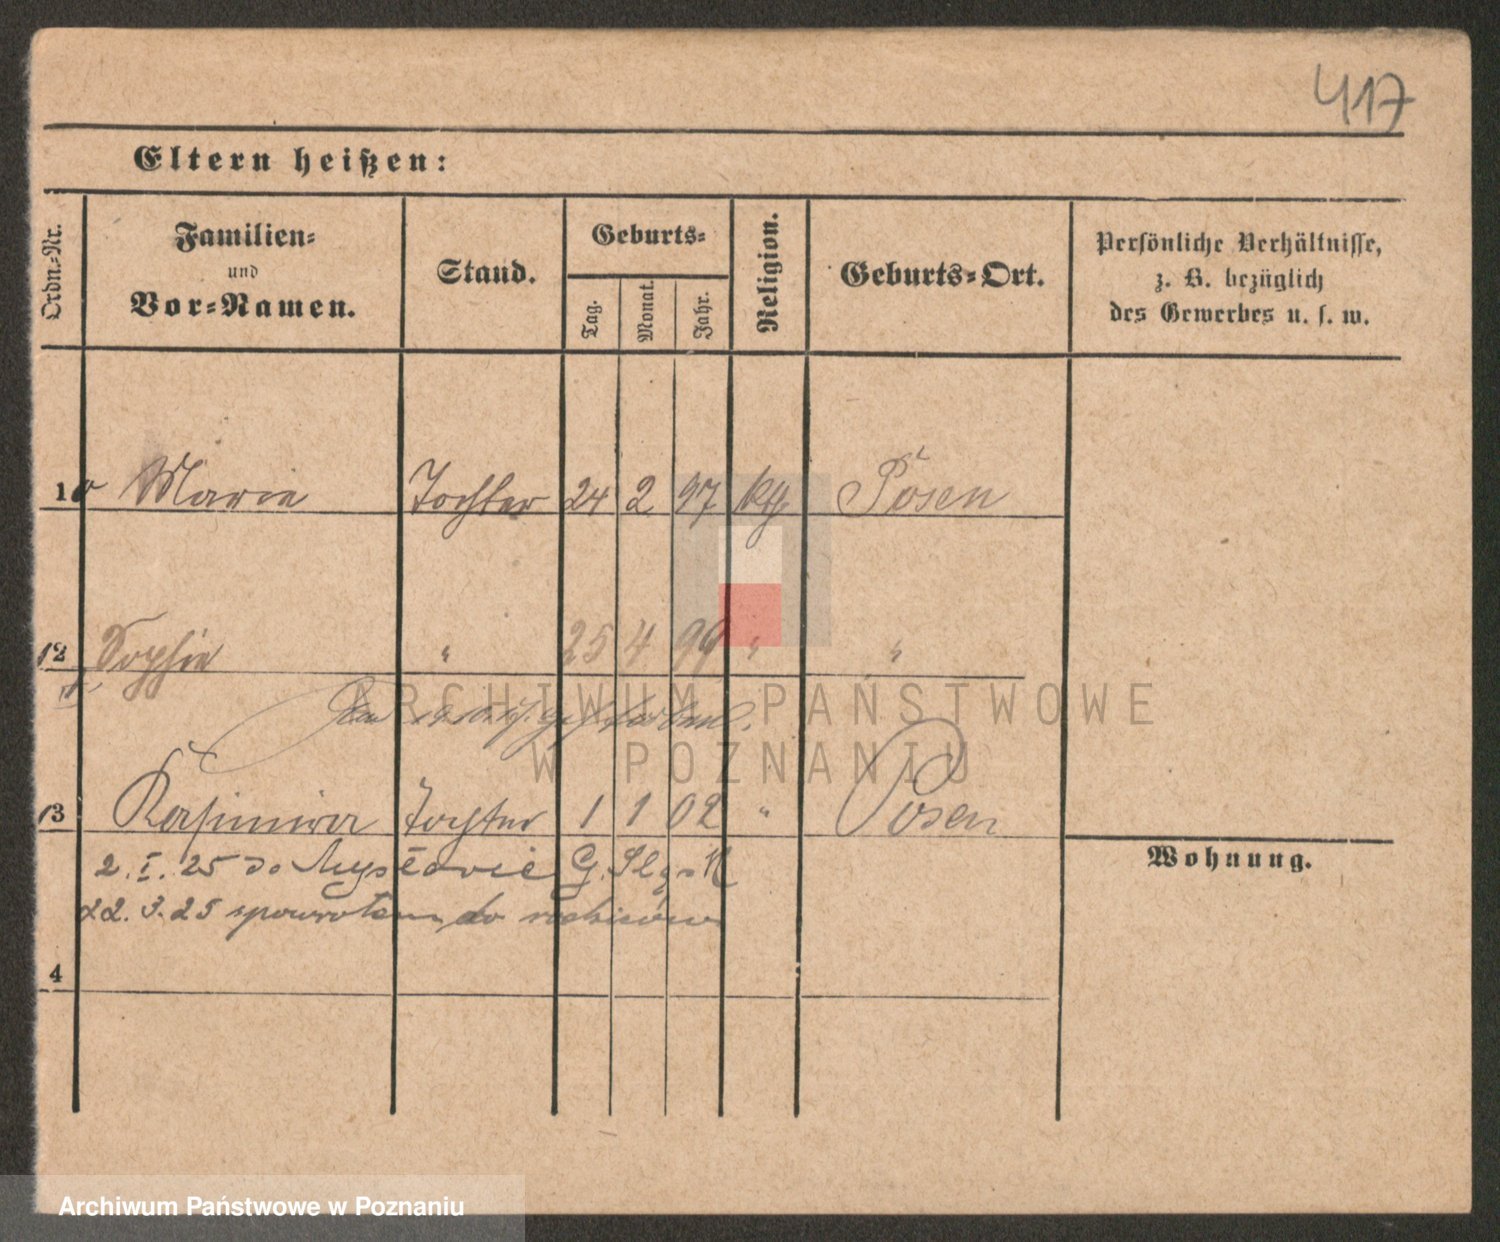 417
Eltern heißen:
Ordn.-Nr.
Familien-
und
Vor-Namen.
Stand.
Geburts-
Tag.
Monat.
Jahr.
Religion.
Geburts-Ort.
Persönliche Verhältnisse,
z. B. bezüglich
des Gewerbes u. s. w.
1 Marie Tochter 24 2 97 kth Posen
12 Sophie " 25 4 99 " "
gestorben.
ARCHIWUM PAŃSTWOWE
W POZNANIU
13 Kasimira Tochter 1 1 02 " Posen
2. I. 25 do G. Śl.
22. 3. 25 spowrotem do rodziców
Wohnung.
4
Archiwum Państwowe w Poznaniu